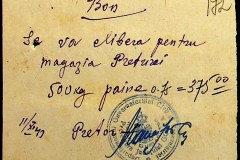 Bon
172
Se va elibera pentru
magazia Preturei
500 kg paine 0.75 = 375 00
Pretor